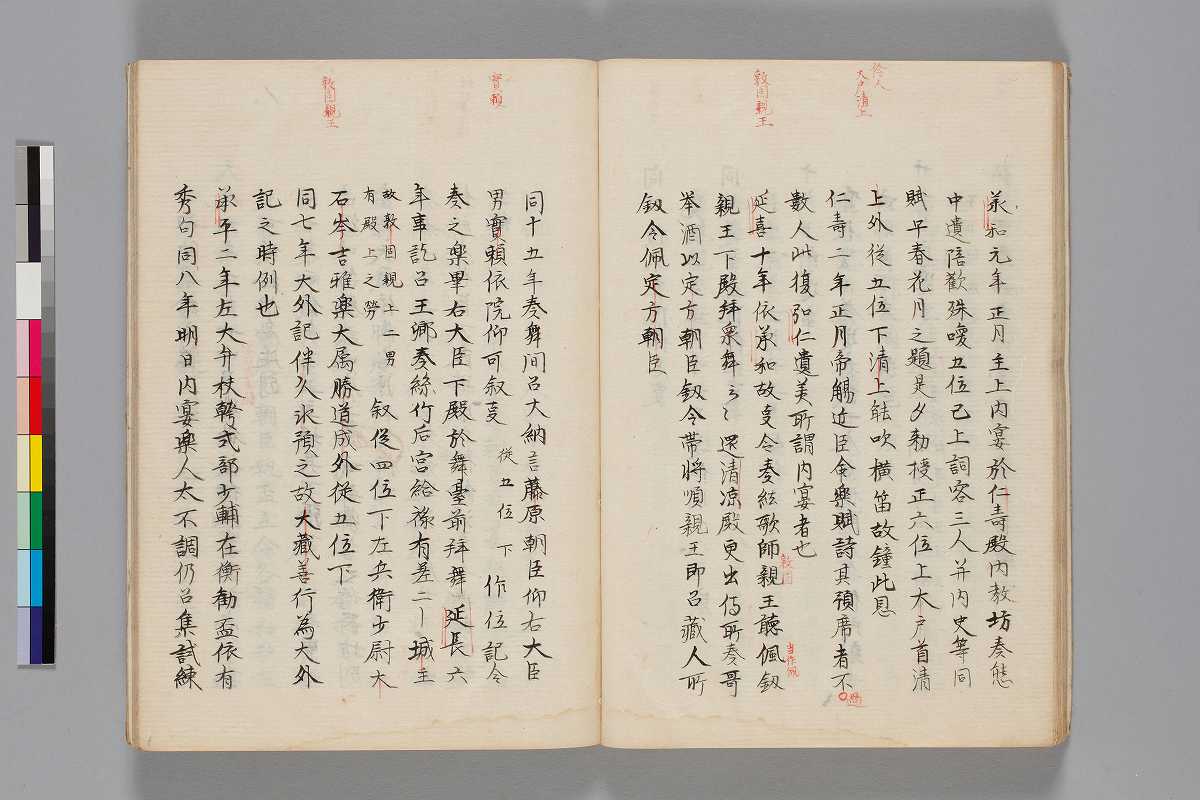 伶人
大戸清上
敦固親王
承和元年正月主上内宴於仁寿殿内教坊奏態
中遺陪歓殊喚五位已上詞客三人并内史等同
賦早春花月之題是夕勅授正六位上大戸首清
上外従五位下清上能吹横笛故鐘此恩
仁寿二年正月帝觴近臣命樂賦詩其預席者不
過
数人此復弘仁遺美所謂内宴者也
敦固
当作佩
延喜十年依承和故支令奏絃歌師親王聴佩釼
親王下殿拝衆舞云々還清凉殿更出侍所奏哥
挙酒以定方朝臣釼令帯将順親王即召蔵人所
釼令佩定方朝臣
實頼
敦固親王
同十五年奏舞間召大納言藤原朝臣仰右大臣
男實頼依院仰可叙支 従五位下 作位記令
奏之樂畢右大臣下殿於舞臺前拝舞 延長六
年事訖召王卿奏絲竹后宮給禄有差二一城主
故敦固親王二男
有殿上之労
叙従四位下左兵衛少尉大
石岑吉雅樂大属勝道成外従五位下
同七年大外記伴久永預之故大蔵善行為大外
記之時例也
承平二年左大弁扶幹式部少輔在衡勧盃依有
秀句同八年明日内宴樂人太不調仍召集試練